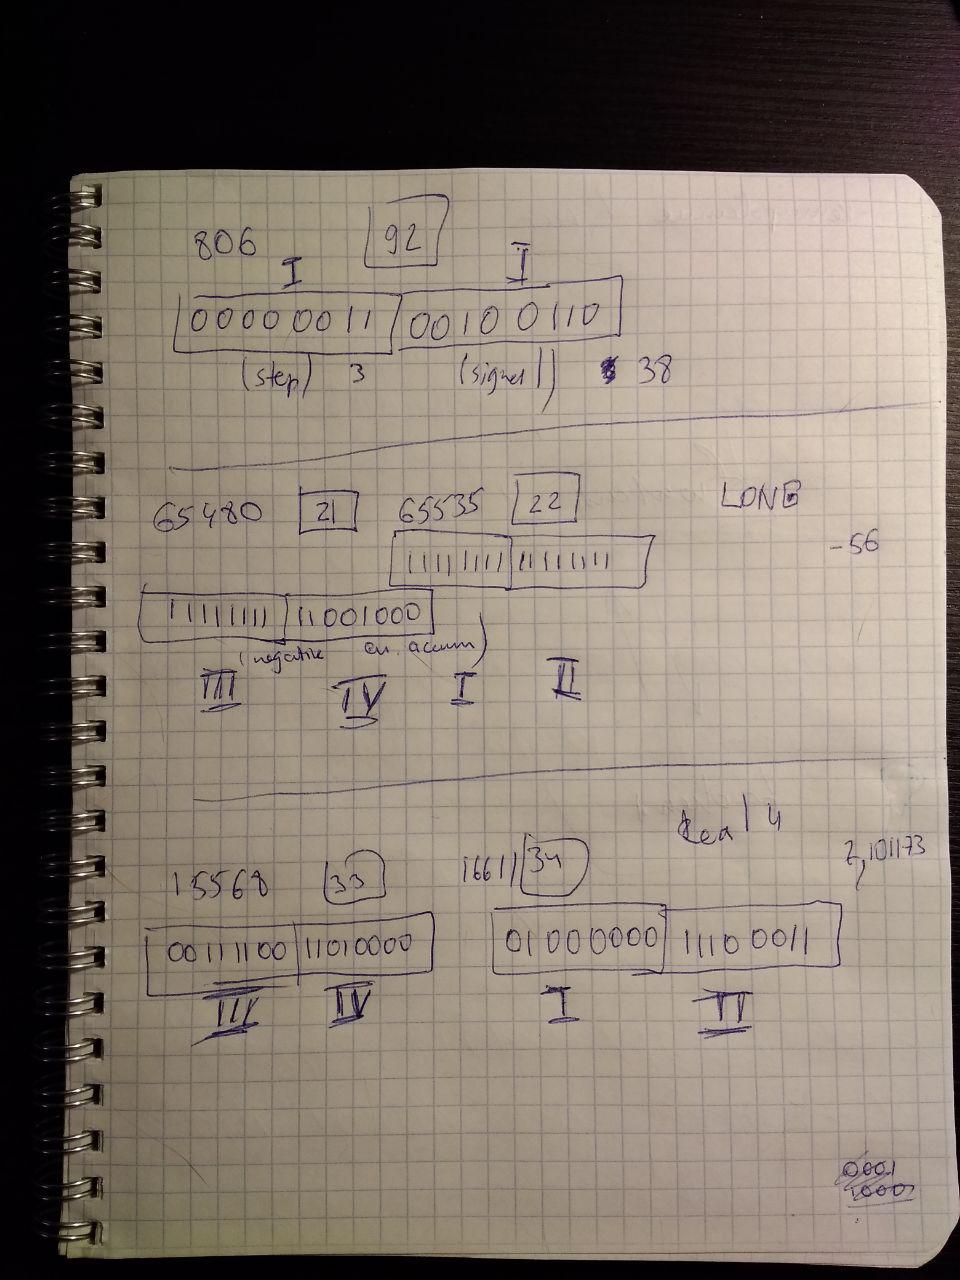 806 92
I I
00000011 00100110
(step) 3 (signal) 38
65480 21 65535 22 LONG
11111111 11111111 -56
11111111 11001000
(negative en. accum)
III IV I II
Real 4
15568 33 16611 34 7,101173
00111100 11010000 01000000 11100011
III IV I II
0001
10001